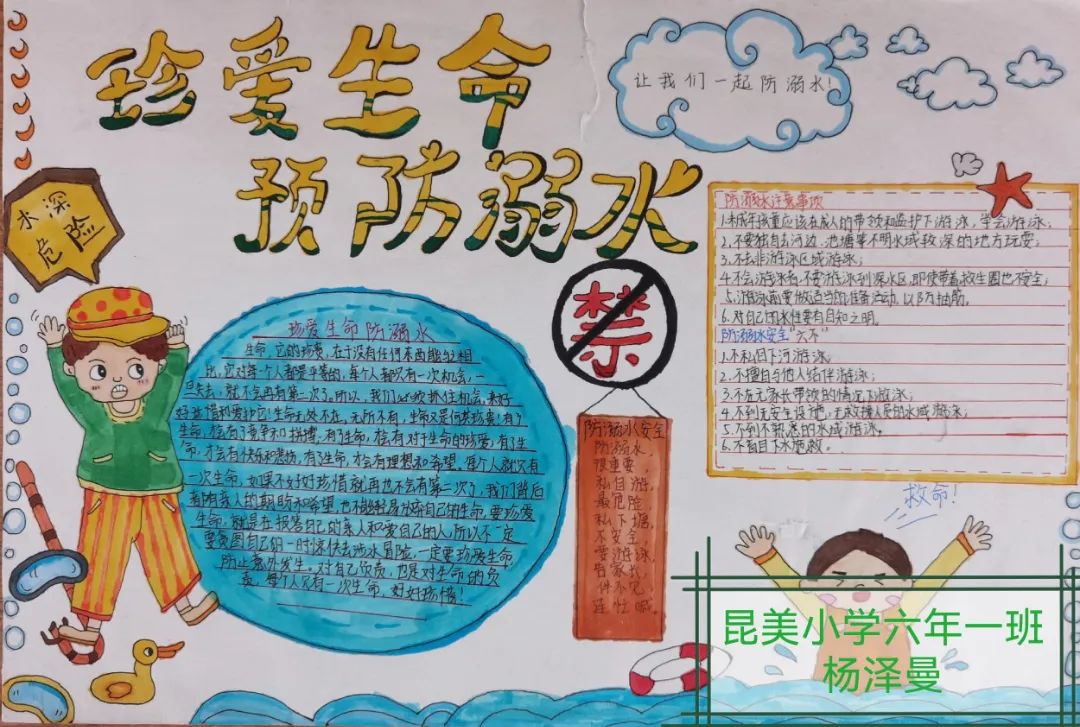 珍爱生命
预防溺水
让我们一起防溺水!
水深
危险
珍爱生命 防溺水
生命,它的珍贵,在于没有任何东西能够相
比,它对每个人都是平等的,每个人都只有一次机会,一
旦失去,就不会再有第二次了。所以,我们必须抓住机会,来好
好珍惜和爱护它!生命无处不在,无所不有,生命又是何其珍贵!有了
生命,才会有竞争和拼搏,有了生命,才会有对于生命的珍爱,有了生
命,才会有快乐和悲伤,有了生命,才会有理想和希望。每个人就只有
一次生命,如果不好好珍惜就再也不会有第二次了,我们背后
都有亲人的期盼和希望,也不能轻易放弃自己的生命,要珍爱
生命,就是在报答自己的亲人和爱自己的人,所以不一定
要贪图自己的一时凉快去涉水冒险,一定要珍爱生命,
防止意外发生。对自己负责,也是对生命的负
责,每个人只有一次生命,好好珍惜!
禁
防溺水安全
防溺水,
很重要,
私自游,
最危险,
私下塘,
不安全,
要游泳,
告家长,
伴不见,
连忙喊。
防溺水注意事项
1.未成年孩童应该在成人的带领和监护下游泳,学会游泳;
2.不要独自去河边、池塘等不明水域较深的地方玩耍;
3.不去非游泳区域游泳;
4.不会游泳者,不要游泳到深水区,即使带着救生圈也不安全;
5.游泳前要做适当的准备活动,以防抽筋。
6.对自己的水性要有自知之明。
防溺水安全"六不"
1.不私自下河游泳;
2.不擅自与他人结伴游泳;
3.不在无家长带领的情况下游泳;
4.不到无安全设施、无救援人员的水域游泳;
5.不到不熟悉的水域游泳。
6.不盲目下水施救。
救命!
昆美小学六年一班
杨泽曼